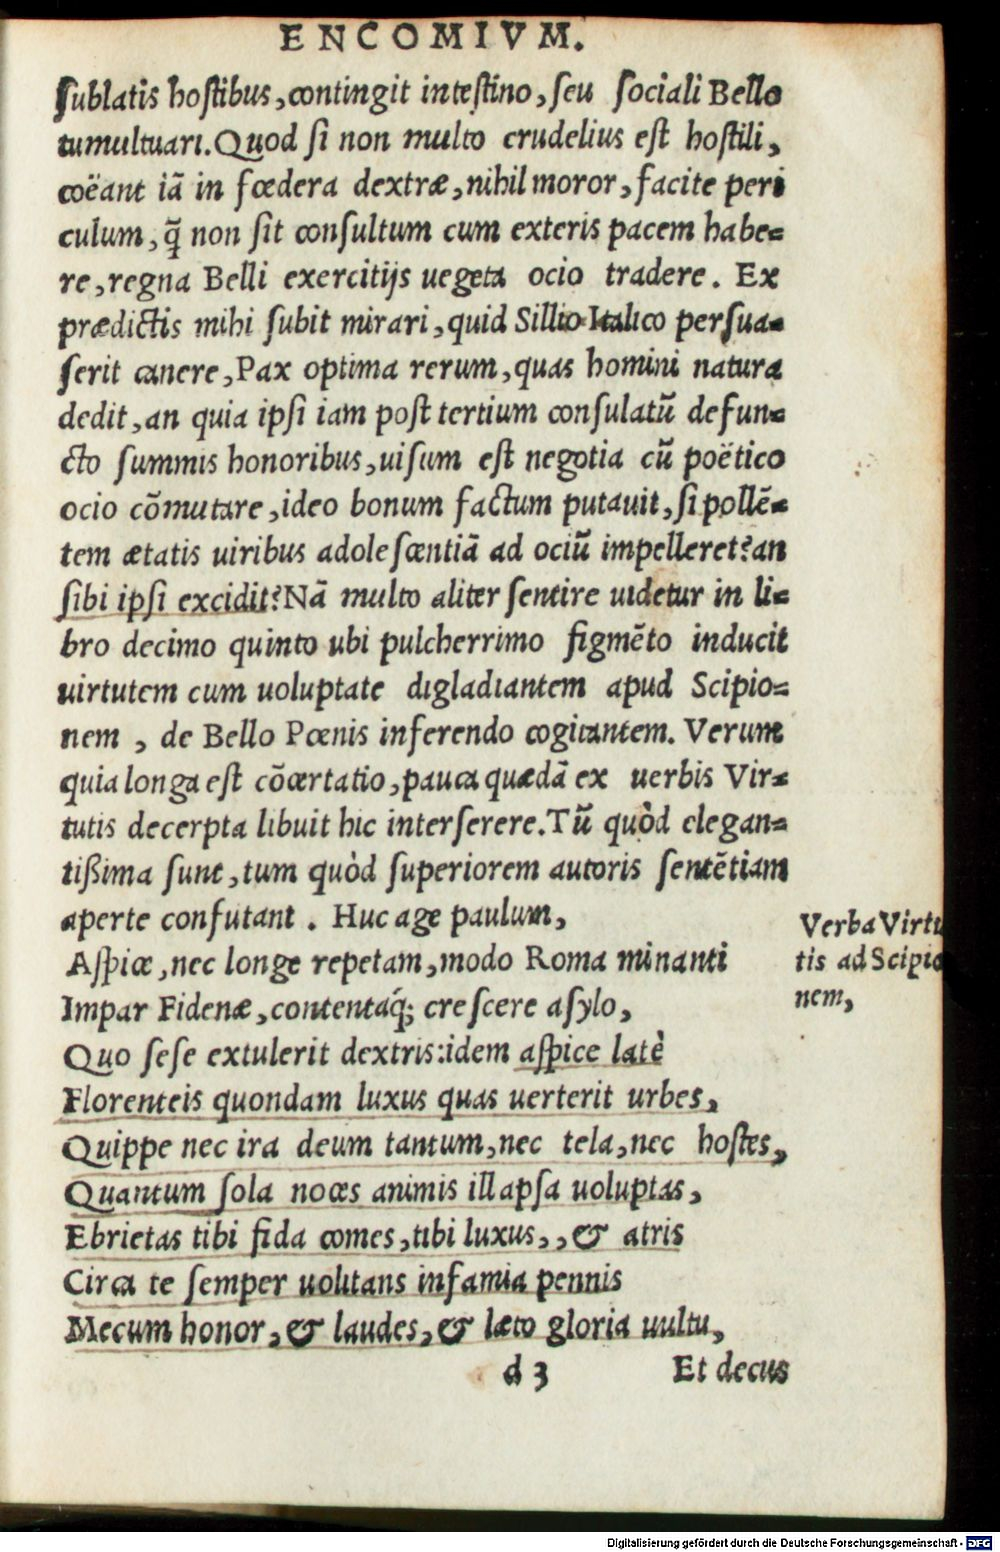 ENCOMIVM.
ſublatis hoſtibus, contingit inteſtino, ſeu ſociali Bello
tumultuari. Quod ſi non multo crudelius eſt hoſtili,
coëant iã in fœdera dextræ, nihil moror, facite peri
culum, q̃ non ſit conſultum cum exteris pacem habe=
re, regna Belli exercitijs uegeta ocio tradere. Ex
prædictis mihi ſubit mirari, quid Sillio Italico perſua=
ſerit canere, Pax optima rerum, quas homini natura
dedit, an quia ipſi iam poſt tertium conſulatũ defun=
cto ſummis honoribus, uiſum eſt negotia cũ poëtico
ocio cõmutare, ideo bonum factum putauit, ſi pollẽ=
tem ætatis uiribus adoleſcentiã ad ociũ impelleret? an
ſibi ipſi excidit? Nã multo aliter ſentire uidetur in li=
bro decimo quinto ubi pulcherrimo figmẽto inducit
uirtutem cum uoluptate digladiantem apud Scipio=
nem, de Bello Pœnis inferendo cogitantem. Verum
quia longa eſt cõcertatio, pauca quædã ex uerbis Vir=
tutis decerpta libuit hic interſerere. Tũ quòd elegan=
tißima ſunt, tum quòd ſuperiorem autoris ſentẽtiam
aperte confutant. Huc age paulum,
Aſpice, nec longe repetam, modo Roma minanti
Impar Fidenæ, contentáq; creſcere aſylo,
Quo ſeſe extulerit dextris: idem aſpice latè
Florenteis quondam luxus quas uerterit urbes,
Quippe nec ira deum tantum, nec tela, nec hoſtes,
Quantum ſola noces animis illapſa uoluptas,
Ebrietas tibi fida comes, tibi luxus,, & atris
Circa te ſemper uolitans infamia pennis
Mecum honor, & laudes, & læto gloria uultu,
d 3 Et decus
Verba Virtu
tis ad Scipio
nem,
Digitalisierung gefördert durch die Deutsche Forschungsgemeinschaft - DFG